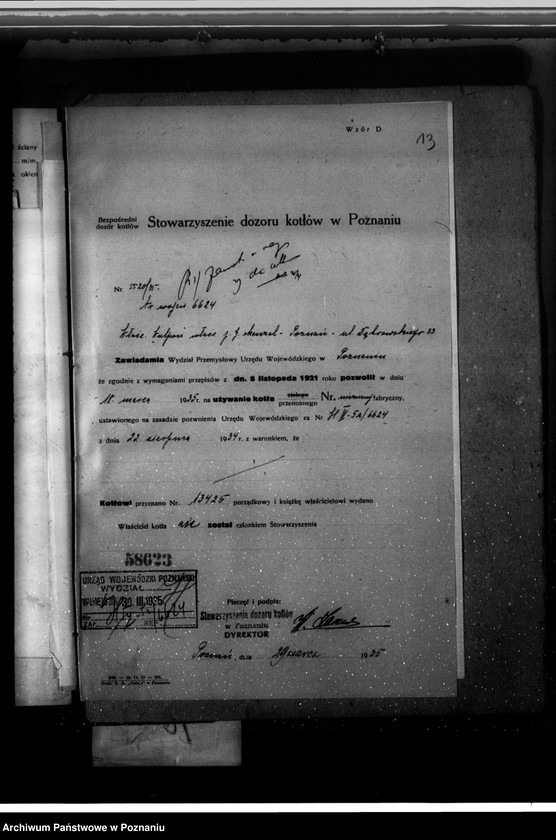 ściany
m/m,
okien
Wzór D.
13
Bezpośredni
dozór kotłów
Stowarzyszenie dozoru kotłów w Poznaniu
Nr.
Nr wojew 6624
Poznań - ul. Dąbrowskiego 83
Zawiadamia Wydział Przemysłowy Urzędu Wojewódzkiego w Poznaniu
że zgodnie z wymaganiami przepisów z dn. 8 listopada 1921 roku pozwolił w dniu
18 marca 1935 r. na używanie kotła stałego
przenośnego Nr. nieznany fabryczny,
ustawionego na zasadzie pozwolenia Urzędu Wojewódzkiego za Nr
z dnia 22 sierpnia 1934 r. z warunkiem, że
Kotłowi przyznano Nr. 13425 porządkowy i książkę właścicielowi wydano
Właściciel kotła nie został członkiem Stowarzyszenia
58623
URZĄD WOJEWÓDZKI POZNAŃSKI
WYDZIAŁ
30. III. 1935
Pieczęć i podpis:
Stowarzyszenie dozoru kotłów
w Poznaniu
DYREKTOR
Poznań, dnia 29 marca 1935
Archiwum Państwowe w Poznaniu